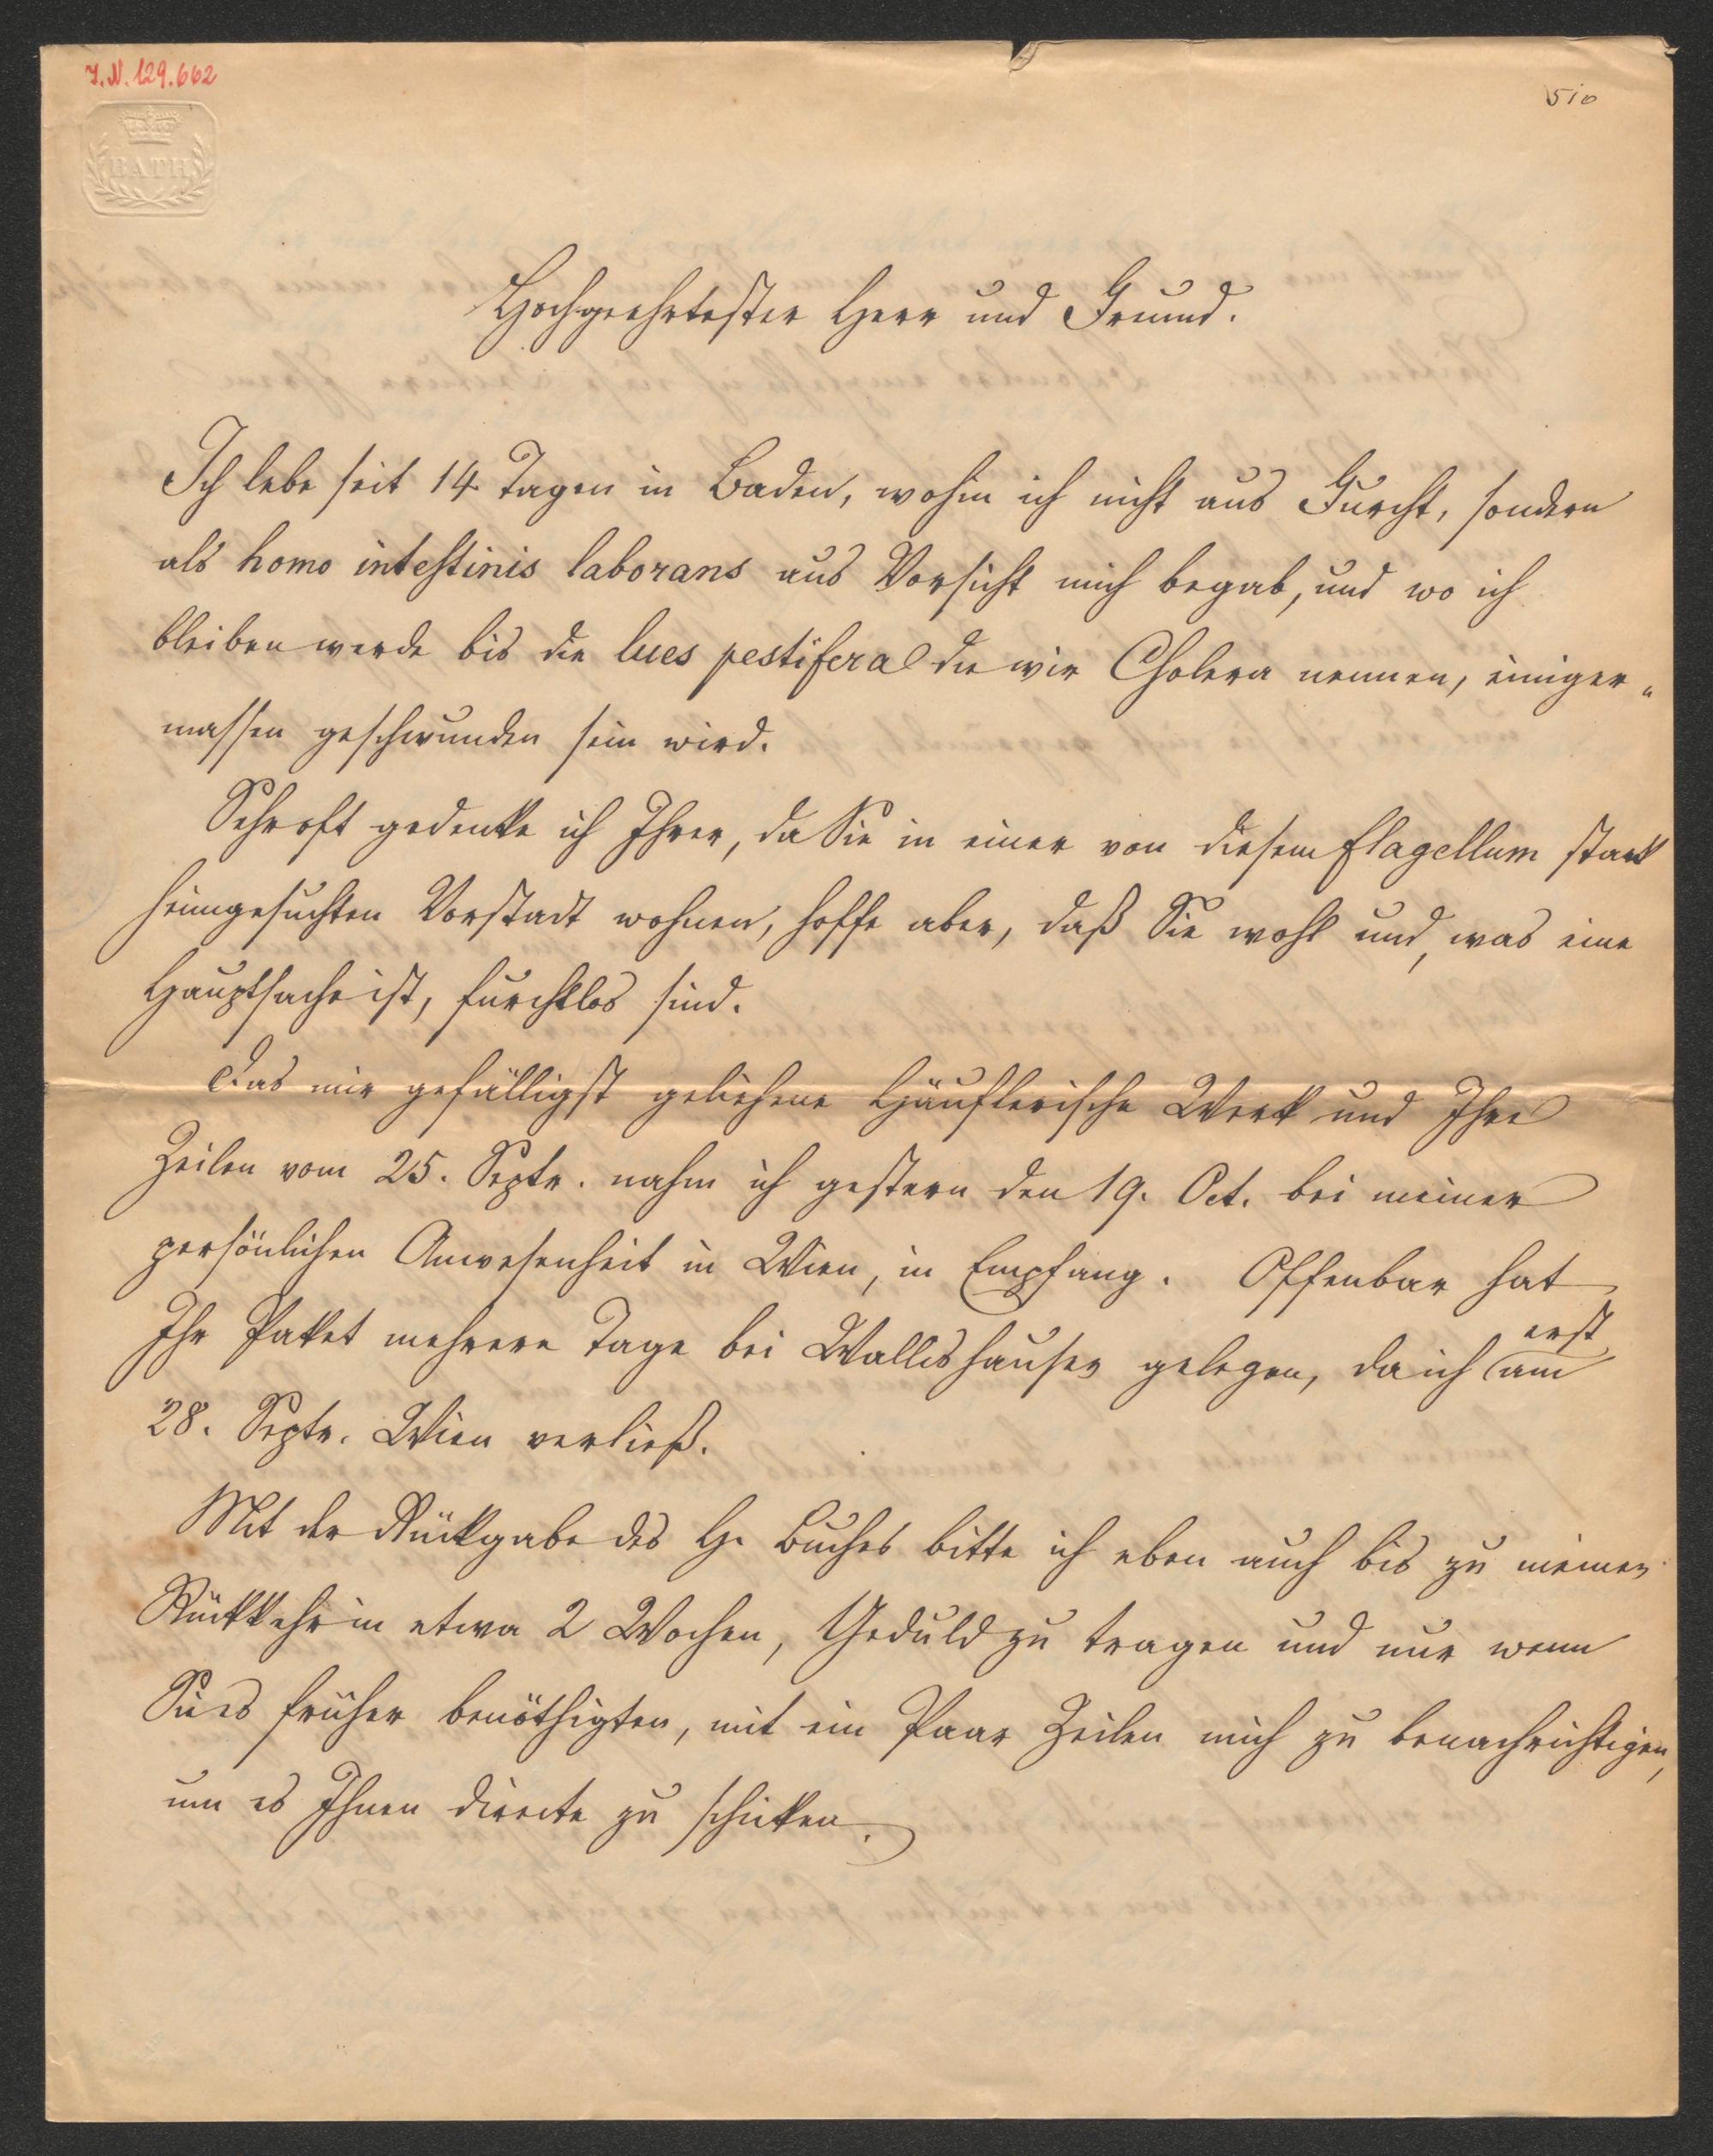 I.N. 129.662
510
BATH
Hochgeehrtester Herr und Freund.
Ich lebe seit 14 Tagen in Baden, wohin ich nicht aus Furcht, sondern
als homo intestinis laborans aus Vorsicht mich begab, und wo ich
bleiben werde bis die lues pestifera die wir Cholera nennen, einiger-
massen geschwunden sein wird.
Sehr oft gedenke ich Ihrer, da Sie in einer von diesem flagellum stark
heimgesuchten Vorstadt wohnen, hoffe aber, daß Sie wohl und, was eine
Hauptsache ist, furchtlos sind.
Das mir gefälligst geliehene Häuflerische Werk und Ihre
Zeilen vom 25. Septr. nahm ich gestern den 19. Oct. bei meiner
persönlichen Anwesenheit in Wien, in Empfang. Offenbar hat
Ihr Paket mehrere Tage bei Wallishauser gelegen, da ich erst am
28. Septr. Wien verließ.
Mit der Rückgabe des H. Buches bitte ich eben auch bis zu meiner
Rückkehr in etwa 2 Wochen, Geduld zu tragen und nur wenn
Sie es früher benöthigten, mit ein Paar Zeilen mich zu benachrichtigen,
um es Ihnen directe zu schicken.